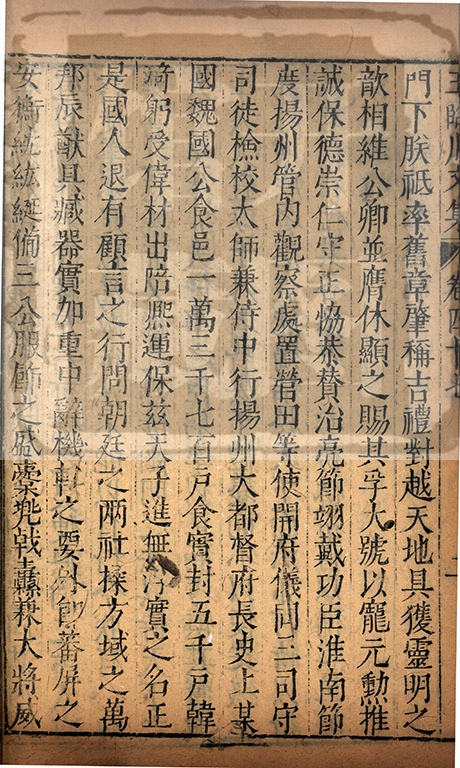 王臨川文集 卷四十七
門下朕祗率舊章肇稱吉禮對越天地具獲靈明之
歆相維公卿並膺休顯之賜其孚大號以寵元勳推
誠保德崇仁守正恊恭贊治亮節翊戴功臣淮南節
度揚州管内觀察處置營田等使開府儀同三司守
司徒檢校太師兼侍中行揚州大都督府長史上某
國魏國公食邑一萬三千七百戶食實封五千戶韓
琦躬受偉材出陪熈運保兹天子進無浮實之名正
是國人退有顧言之行問朝廷之兩社操方域之萬
邦辰猷具臧器實加重中辭機軸之要外即蕃屏之
安衡紞紘綖備三公服節之盛櫜兠戟纛兼大將威